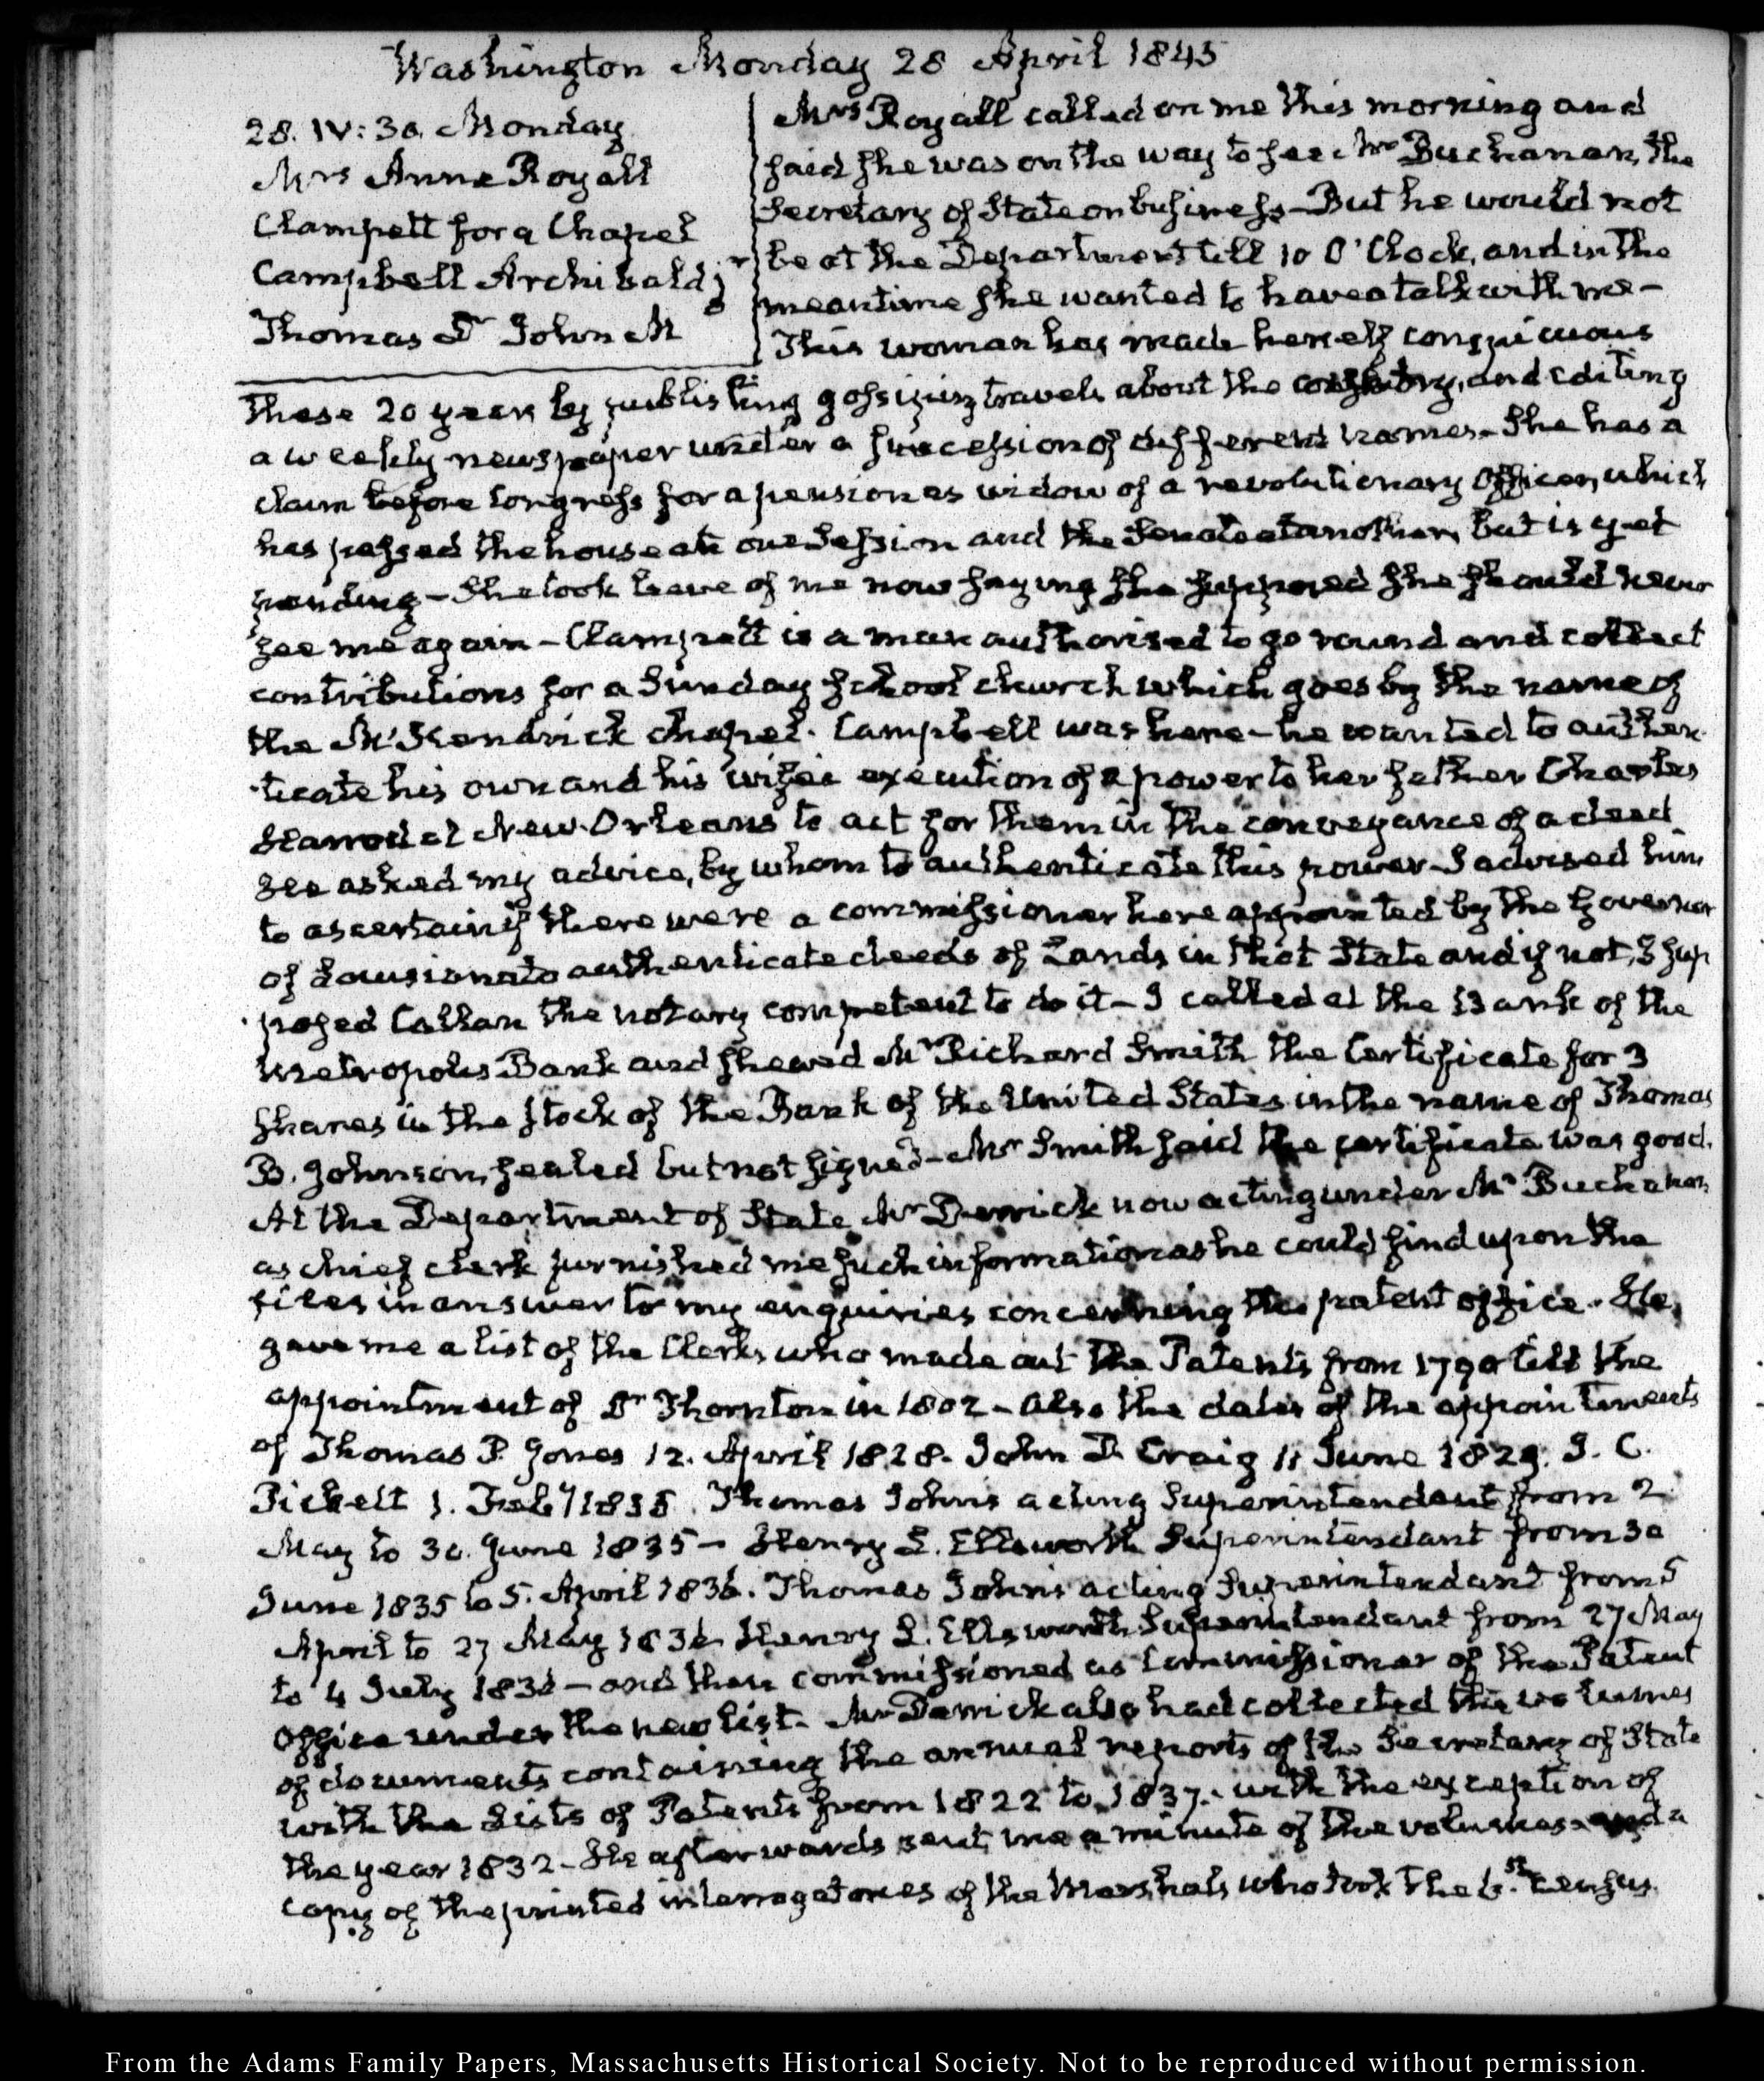 Washington Monday 28 April 1845
28. IV:30. Monday
Mrs Anne Royall
Clampett for a Chapel
Campbell Archibald jr
Thomas Dr John M
Mrs Royall called on me this morning and
said she was on the way to see Mr Buchanan, the
Secretary of State on business—But he would not
be at the Department till 10 O'Clock, and in the
meantime she wanted to have a talk with me—
This woman has made herself conspicuous
these 20 years by publishing gossiping travels about the country, and editing
a weekly newspaper under a succession of different names. She has a
claim before Congress for a pension as widow of a revolutionary Officer, which
has passed the house at one Session and the Senate at another, but is yet
pending—She took leave of me now saying she supposed she should never
see me again—Clampett is a man authorised to go round and collect
contributions for a Sunday school church which goes by the name of
the McKendrick chapel. Campbell was here—he wanted to authen-
ticate his own and his wife's execution of a power to her father Charles
Harrod at New-Orleans to act for them in the conveyance of a deed
He asked my advice, by whom to authenticate this power—I advised him
to ascertain if there were a commissioner here appointed by the Governor
of Louisiana to authenticate deeds of Lands in that State and if not, I sup
posed Callan the notary competent to do it—I called at the Bank of the
Metropolis Bank and shewed Mr Richard Smith the Certificate for 3
shares in the stock of the Bank of the United States in the name of Thomas
B. Johnson, sealed but not signed—Mr Smith said the certificate was good.
At the Department of State Mr Derrick now acting under Mr Buchanan
as chief clerk furnished me such information as he could find upon the
files in answer to my enquiries concerning the patent office. He
gave me a list of the Clerks who made out the Patents from 1790 till the
appointment of Dr Thornton in 1802—also the dates of the appointments
of Thomas P. Jones 12. April 1828. John D. Craig 11 June 1829. J. C.
Pickett 1. Feby 1835. Thomas Johns acting Superintendent from 2
May to 30. June 1835—Henry L. Ellsworth Superintendant from 30
June 1835 to 5. April 1836. Thomas Johns acting Superintendant from 5
April to 27 May 1836 Henry L. Ellsworth Superintendant from 27 May
to 4 July 1836—and then commissioned as Commissioner of the Patent
Office under the new list. Mr Derrick also had collected the volumes
of documents containing the annual reports of the Secretary of State
with the Lists of Patents from 1822 to 1837. with the exception of
the year 1832—He afterwards sent me a minute of the volumes and a
copy of the printed interrogatories of the Marshals who took the 6.st Census.
From the Adams Family Papers, Massachusetts Historical Society. Not to be reproduced without permission.